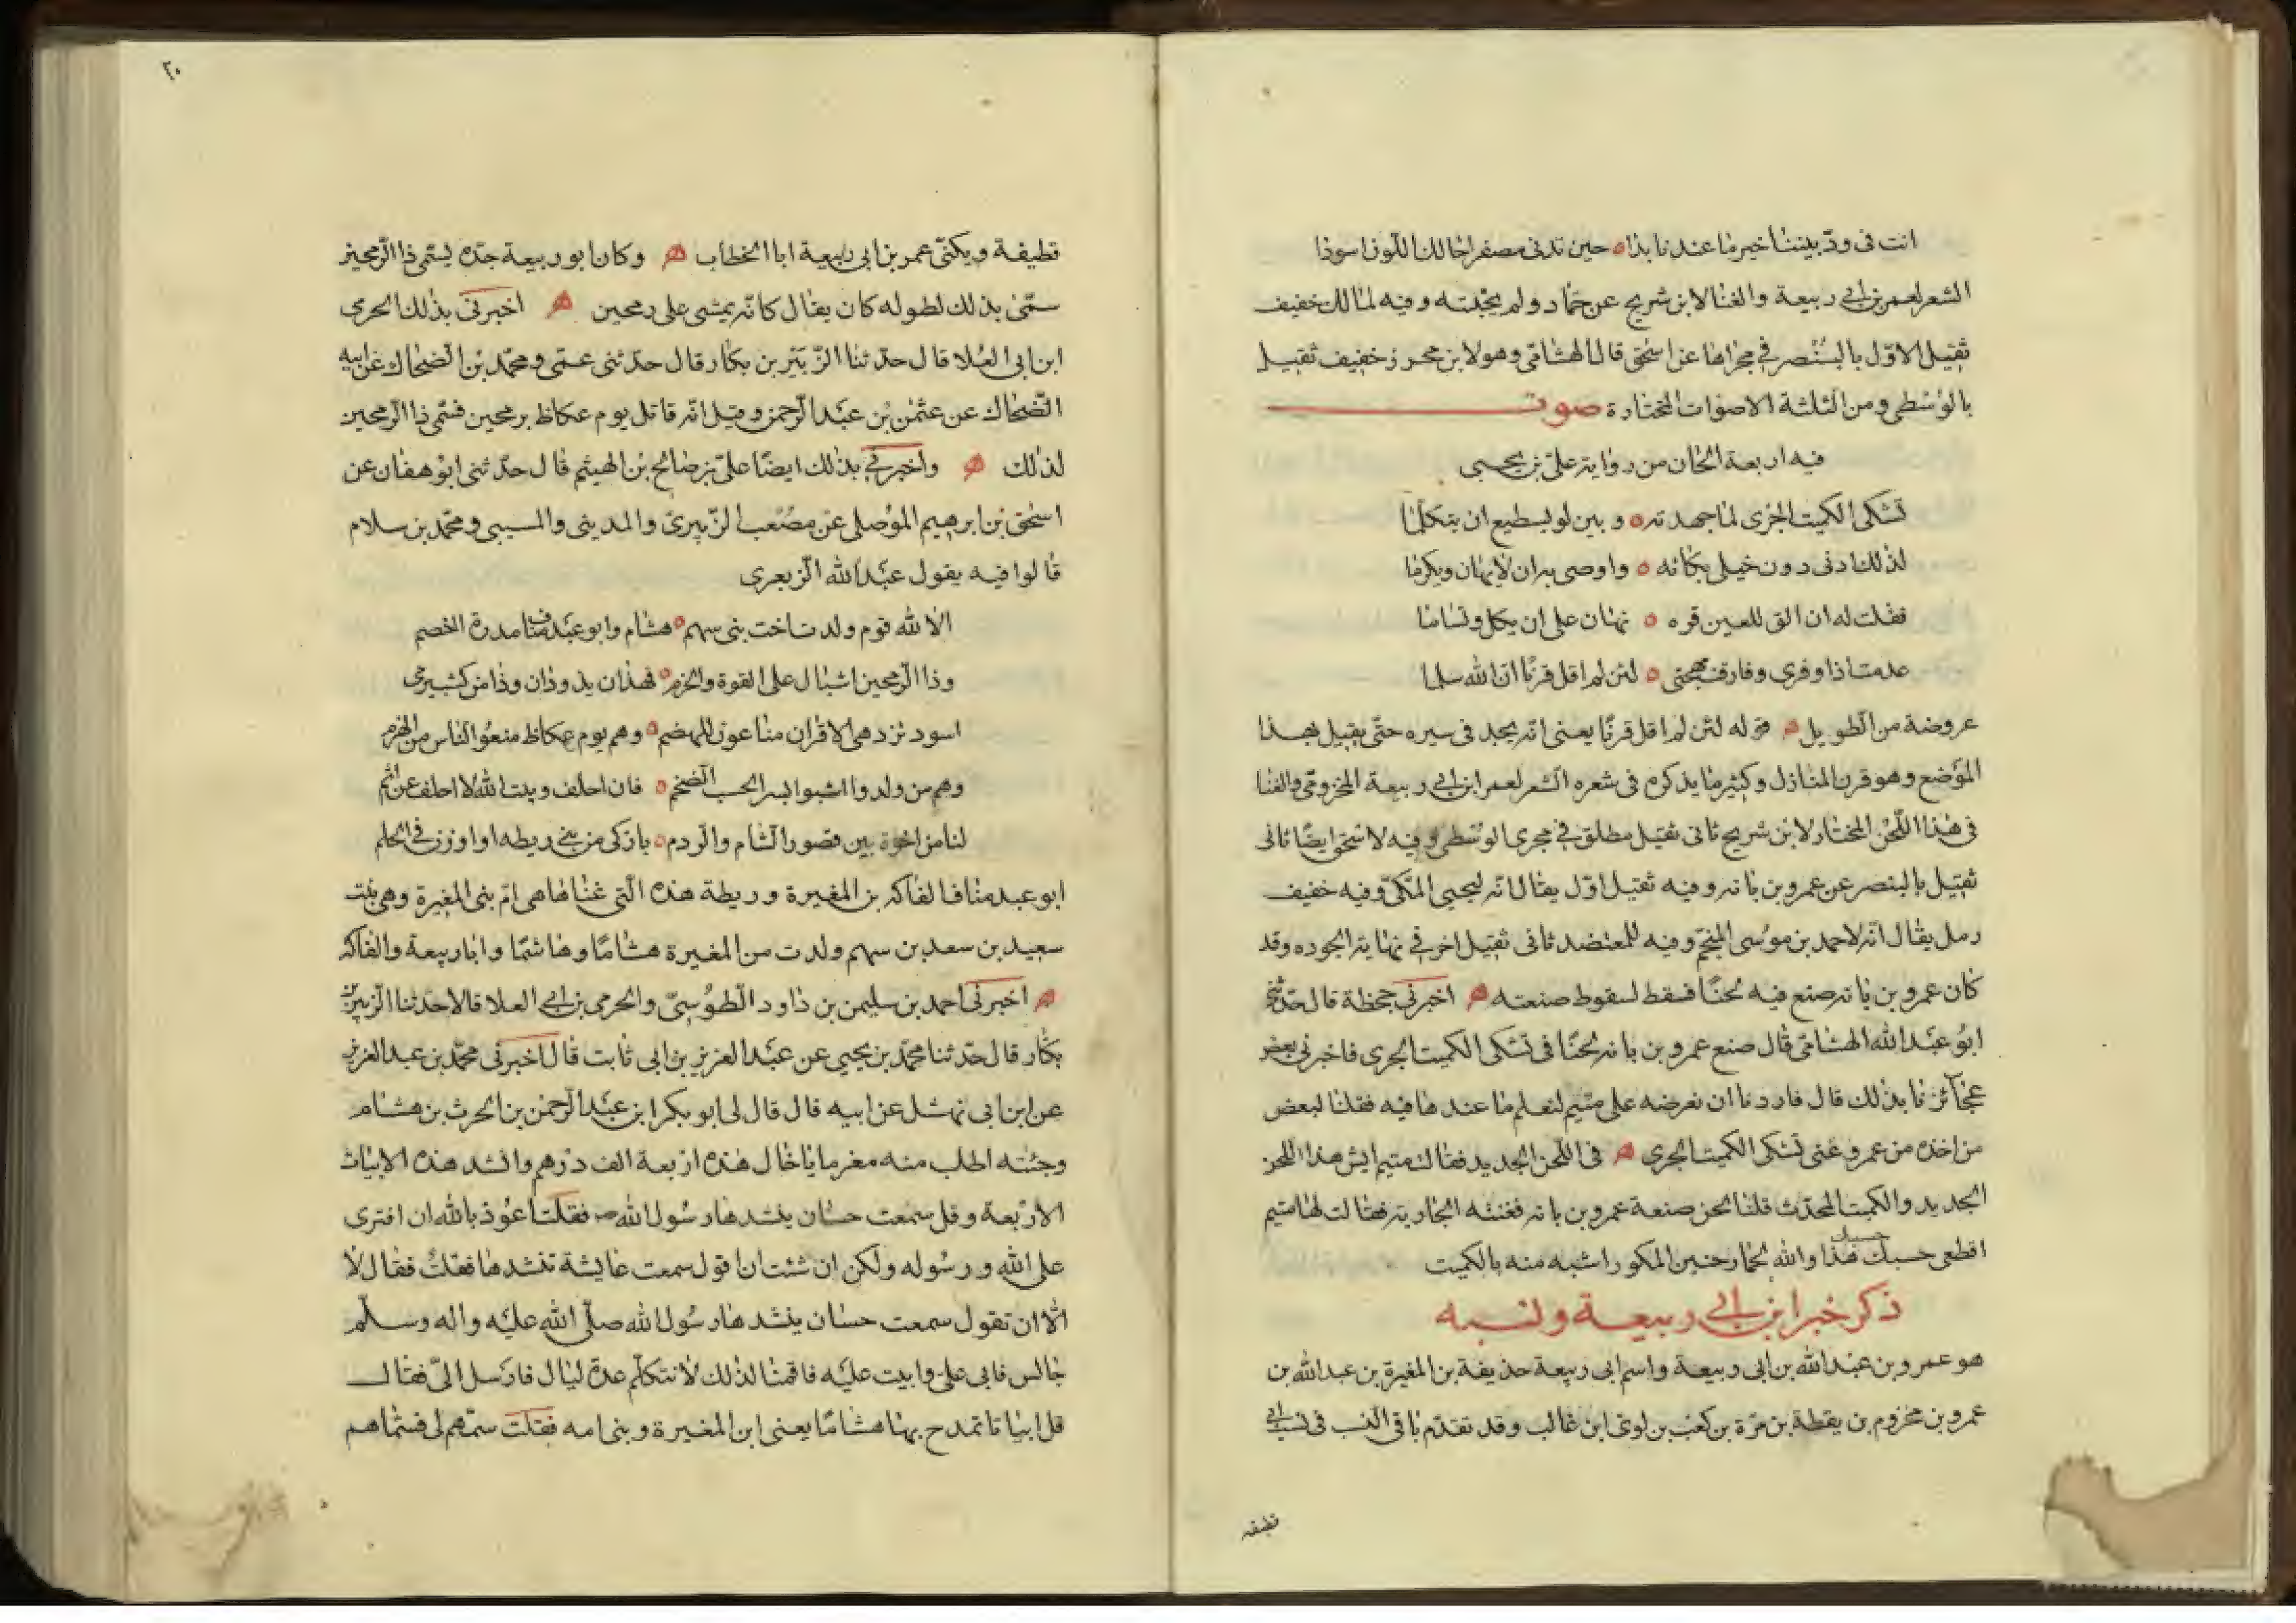 انت فى ودّ بيننا خير ما عندنا بذا ه حين تدنى مصفرا حالك اللون اسودا
الشعر لعمر بن ابي ربيعة والغنا لابن شريح عن حماد ولم يجنّسه وفيه لمالك خفيف
ثقيل الاوّل بالبنصر في مجراها عن اسحٰق قال الهشامّى وهو لابن محرز خفيف ثقيل
بالوسطى ومن الثلثة الاصوات المختارة صوت
فيه اربعة الحان من رواية علىّ بن يحيى
تشكى الكميت الجرى لما جهدته ه وبين لو يسطيع ان يتكلما
لذلك ادنى دون خيلى مكانه ه واوصى به ان لا يهان ويكرما
فقلت له ان الق للعين قره ه نهان على ان يكل وتساما
عدمت اذا وفرى وفارقت مهجتى ه لئن لم اقل قرنًا ان الله سلما
عروضة من الطويل ه قوله لئن لم اقل قرنًا يعنى انه يجد فى سيره حتّى يقيل بهذا
الموضع وهو قرن المنازل وكثير ما يذكره فى شعره الشعر لعمر ابن ابي ربيعة المخزومّى والغنا
فى هذا اللّحن المختار لابن شريح ثانى ثقيل مطلق في مجرى الوسطى وفيه لاسحٰق ايضًا ثانى
ثقيل بالبنصر عن عمرو بن بانه وفيه ثقيل اوّل يقال انه ليحيى المكّى وفيه خفيف
رمل يقال انه لاحمد بن موسى المنجّم وفيه للمعتضد ثانى ثقيل اخر في نهاية الجوده وقد
كان عمرو بن بانه صنع فيه لحنًا فسقط لسقوط صنعته ه اخبرنى جحظة قال حدّثنى
ابو عبد الله الهشامّى قال صنع عمرو بن بانه لحنًا فى تشكى الكميت الجرى فاخبرنى بعض
عجآئزنا بذلك قال فاردنا ان نعرضه على متيم لنعلم ما عندها فيه فقلنا لبعض
من اخذه من عمرو غنى تشكى الكميت الجرى ه فى اللّحن الجديد فقالت متيم ايش هذا اللحن
الجديد والكميت المحدث قلنا لحن صنعة عمرو بن بانه فغنته الجارية فقالت لها متيم
اقطعى حسبك حسبك هذا والله لحمار حنين المكور اشبه منه بالكميت
ذكر خبر ابن ابي ربيعة ونسبه
هو عمرو بن عبد الله بن ابى ربيعة واسم ابى ربيعة حذيفة بن المغيرة بن عبد الله بن
عمرو بن مخزوم بن يقطة بن مرّة بن كعب بن لوى ابن غالب وقد تقدّم باقى النسب فى نسب ابي
قطيفه
٢٠
قطيفة ويكنّى عمر بن ابى ربيعة ابا الخطاب ه وكان ابو ربيعة جدّه يسمّى ذا الرمحين
سمّى بذلك لطوله كان يقال كانّه يمشى على رمحين ه اخبرنى بذلك الحرمى
ابن ابى العلا قال حدّثنا الزّبير بن بكار قال حدّثنى عمّى ومحمّد بن الضحاك عن ابيه
الضحاك عن عثمٰن بن عبد الرحمن وقيل انّه قاتل يوم عكاظ برمحين فسمّى ذا الرمحين
لذلك ه واخبرني بذلك ايضًا علىّ بن صالح بن الهيثم قال حدّثنى ابو هفان عن
اسحٰق بن ابرهيم الموصلى عن مصعب الزّبيرىّ والمدينى والمسيبى ومحمّد بن سلام
قالوا فيه يقول عبد الله الزبعرى
الا لله قوم ولدت اخت بنى سهم ه هشام وابو عبد مناف مدرة الخصم
وذا الرمحين اشبال على القوة والحزم ه فهذان يذودان وذا من كثب يرمى
اسود تزدهى الاقران مناعون للهضم ه وهم يوم عكاظ منعوا الناس من الهزم
وهم من ولدوا اشبوا بسر الحسب الضخم ه فان احلف وبيت الله لا احلف عن اثم
لما من اخوة بين قصور الشام والردم ه بازكى من بني ريطه او اوزن في الحلم
ابو عبد مناف الفاكه بن المغيرة وريطة هذه الّتى عناها هى امّ بنى المغيرة وهى بنت
سعيد بن سعد بن سهم ولدت من المغيرة هشامًا وهاشمًا وابا ربيعة والفاكه
ه اخبرنى احمد بن سليمن بن داود الطوسىّ والحرمى بن ابي العلا قالا حدّثنا الزبير بن
بكّار قال حدّثنا محمّد بن يحيى عن عبد العزيز بن ابى ثابت قال اخبرنى محمّد بن عبد العزيز
عن ابن ابى نهشل عن ابيه قال قال لى ابو بكر ابن عبد الرّحمٰن بن الحرث بن هشام
وجئته اطلب منه مغرما يا خال هذه اربعة الف درهم وانشد هذه الابيات
الاربعة وقل سمعت حسّان ينشدها رسول الله ص فقلت اعوذ بالله ان افترى
على الله ورسوله ولكن ان شئت ان اقول سمعت عايشة تنشدها فعلت فقال لا
الّا ان تقول سمعت حسان ينشدها رسول الله صلّى الله عليه واله وسلّم
جالس فابى على وابيت عليه فاقمنا لذلك لا نتكلّم عدة ليال فارسل الىّ فقال
قل ابياتا تمدح بها هشامًا يعنى ابن المغيرة وبنى امه فقلت سمّهم لى فسمّاهم